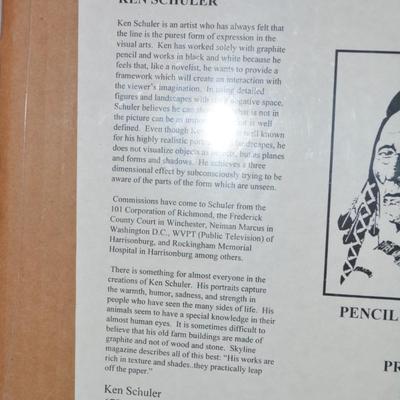 KEN SCHULER
Ken Schuler is an artist who has always felt that
the line is the purest form of expression in the
visual arts. Ken has worked solely with graphite
pencil and works in black and white because he
feels that, like a novelist, he wants to provide a
framework which will create an interaction with
the viewer's imagination. In using detailed
figures and landscapes with negative space,
Schuler believes he can that is not in
the picture can be as is well
defined. Even though Ken well known
for his highly realistic landscapes, he
does not visualize objects as but as planes
and forms and shadows. He achieves a three
dimensional effect by subconsciously trying to be
aware of the parts of the form which are unseen.
Commissions have come to Schuler from the
101 Corporation of Richmond, the Frederick
County Court in Winchester, Neiman Marcus in
Washington D.C., WVPT (Public Television) of
Harrisonburg, and Rockingham Memorial
Hospital in Harrisonburg among others.
There is something for almost everyone in the
creations of Ken Schuler. His portraits capture
the warmth, humor, sadness, and strength in
people who have seen the many sides of life. His
animals seem to have a special knowledge in their
almost human eyes. It is sometimes difficult to
believe that his old farm buildings are made of
graphite and not of wood and stone. Skyline
magazine describes all of this best: "His works are
rich in texture and shades..they practically leap
off the paper."
Ken Schuler
PENCIL
PR